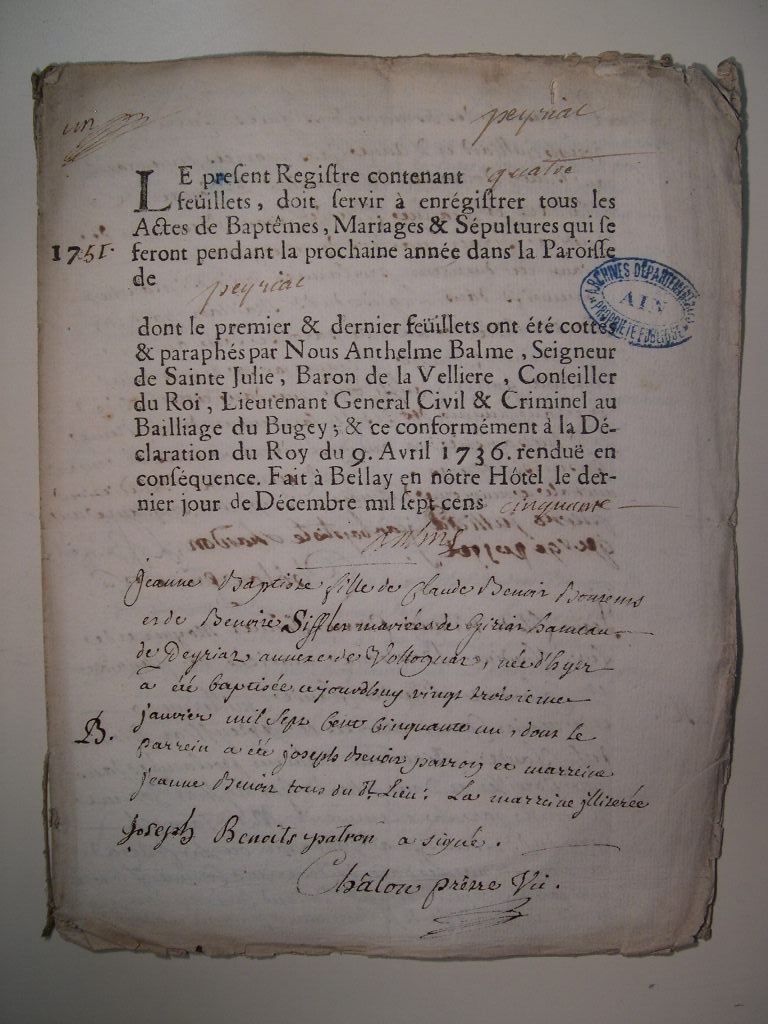 un
peyriac
LE preſent Regiſtre contenant quatre
feüillets, doit ſervir à enrégiſtrer tous les
Actes de Baptêmes, Mariages & Sépultures qui ſe
1751. feront pendant la prochaine année dans la Paroiſſe
de peyriac
ARCHIVES DÉPARTEMENTALES
AIN
PROPRIÉTÉ PUBLIQUE
dont le premier & dernier feüillets ont été cottés
& paraphés par Nous Anthelme Balme, Seigneur
de Sainte Julie, Baron de la Velliere, Conſeiller
du Roi, Lieutenant General Civil & Criminel au
Bailliage du Bugey; & ce conformément à la Dé-
claration du Roy du 9. Avril 1736. renduë en
conſéquence. Fait à Bellay en nôtre Hôtel le der-
nier jour de Décembre mil ſept cens cinquante
Jeanne Baptiste fille de Claude Benoit
et de Benoite Siffler mariées de hameau
de Peyriaz annexe de, née d'hyer
a été baptisée ce jourdhuy vingt troisieme
B. janvier mil Sept Cent Cinquante un, dont le
parrein a été joseph Benoit et marreine
jeanne Benoit tous du dt Lieu. La marreine illiterée
Joseph Benoits patron a signé.
Châlon prêtre Vic.